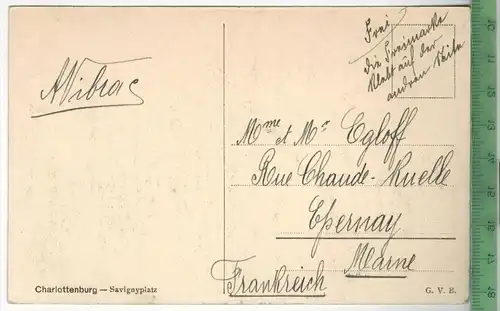 Frei
die Freimarke
klebt auf der
andren Seite
AVibrac
Mme et Mr Egloff
Rue Chaude-Ruelle
Epernay
Marne
Frankreich
Charlottenburg — Savignyplatz
G. V. B.